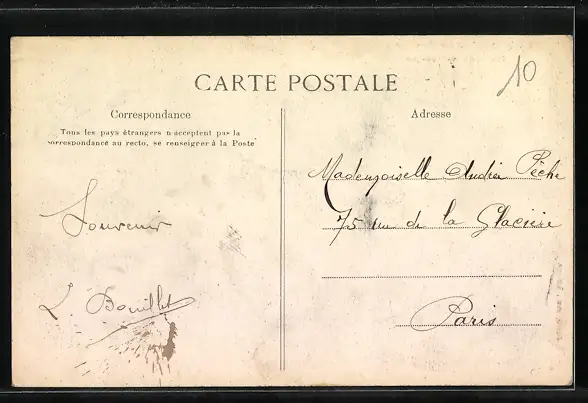 CARTE POSTALE
10
Correspondance
Tous les pays étrangers n'acceptent pas la
correspondance au recto, se renseigner à la Poste
Souvenir
L. Bouillet
Adresse
Mademoiselle Andrée Pêche
75 rue de la Glacière
Paris